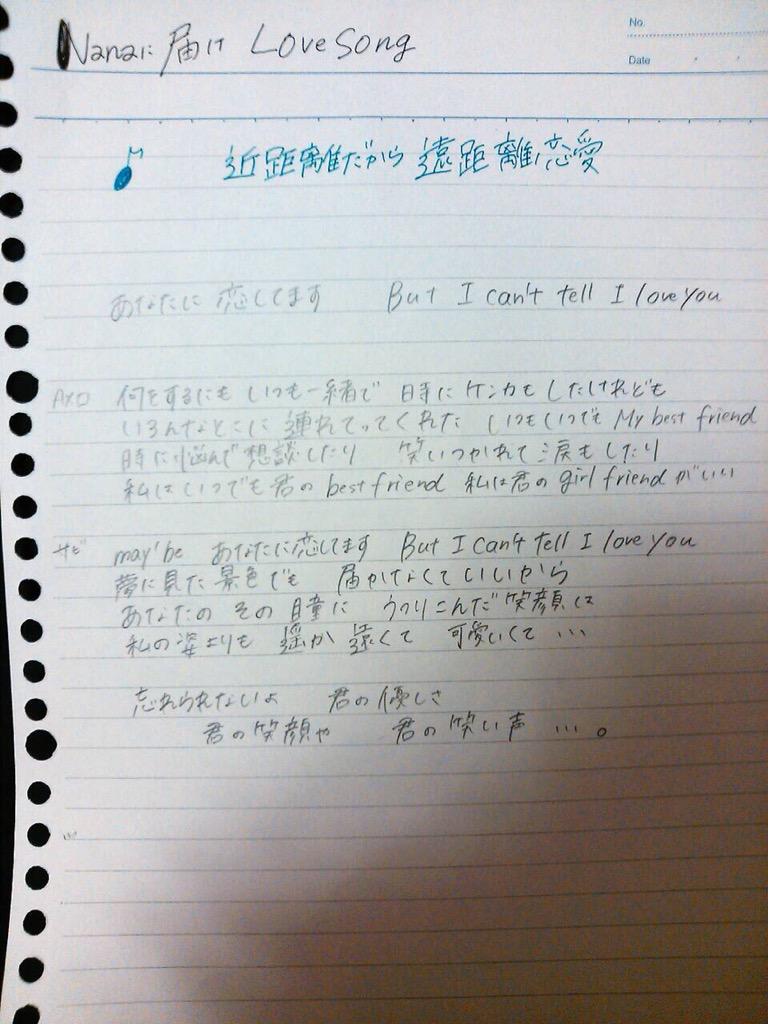 Nanaに届け Love Song
No.
Date
近距離だから 遠距離恋愛
あなたに 恋してます But I can't tell I love you
Aメロ 何をするにも いつも一緒で 時に ケンカも したけれども
いろんなとこに 連れてってくれた いつもいつでも My best friend
時に 悩んで 想談したり 笑いつかれて 涙もしたり
私は いつでも 君の best friend 私は 君の girl friend がいい
サビ may'be あなたに恋してます But I can't tell I love you
夢に見た 景色でも 届かなくていいから
あなたの その 瞳に うつりこんだ 笑顔は
私の 姿よりも 遥か 遠くて 可愛いくて …
忘れられないよ 君の 優しさ
君の 笑顔や 君の 笑い声 …。